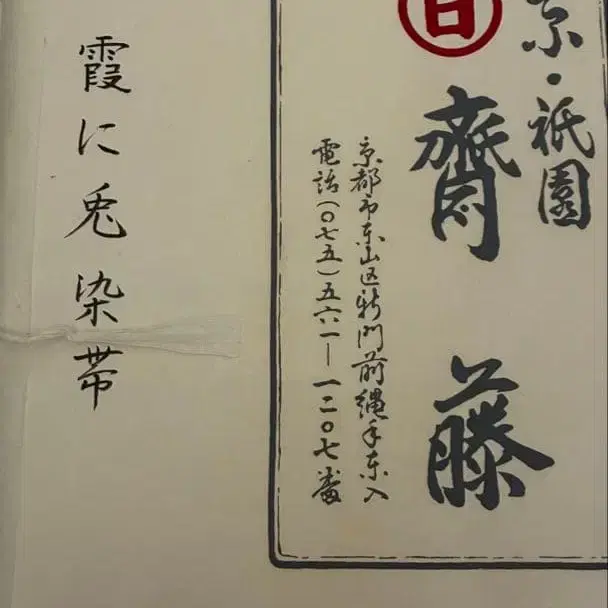 京・祇園
㊐
齋藤
京都市東山区新門前縄手東入
電話（〇七五）五六一―一二〇七番
霞に兎染帯